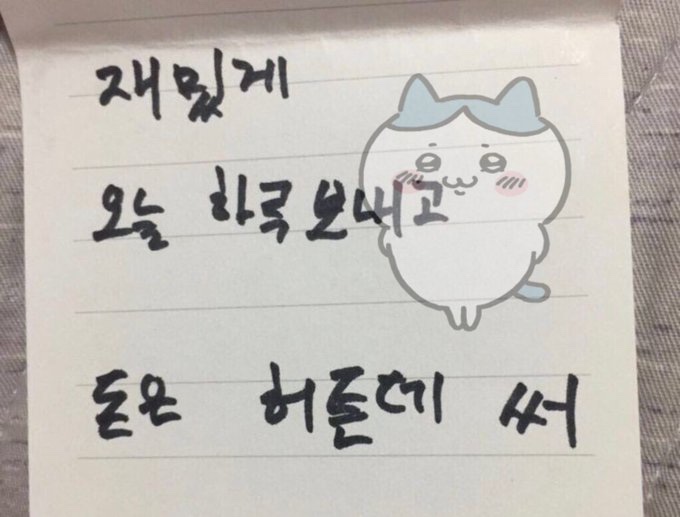 재밌게
오늘 하루 보내고
돈은 허튼데 써